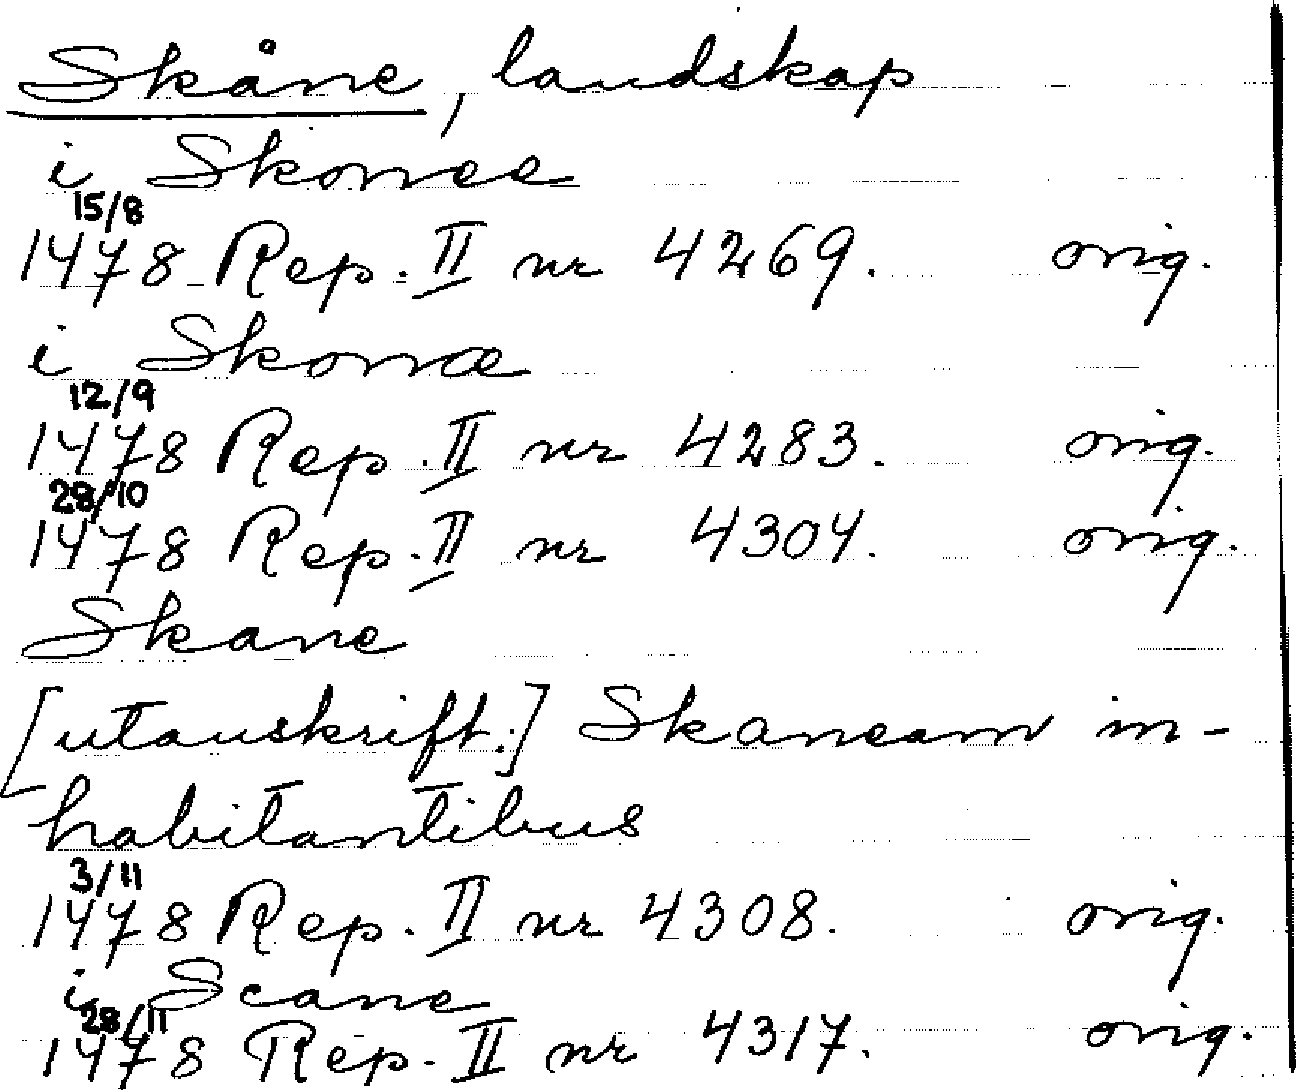 Skåne, landskap
i Skonee
15/8
1478 Rep. II nr 4269. orig.
i Skonæ
12/9
1478 Rep. II nr 4283. orig.
28/10
1478 Rep. II nr 4304. orig.
Skane
[utanskrift:] Skaneam in-
habitantibus
3/11
1478 Rep. II nr 4308. orig.
i Scane
28/11
1478 Rep. II nr 4317. orig.